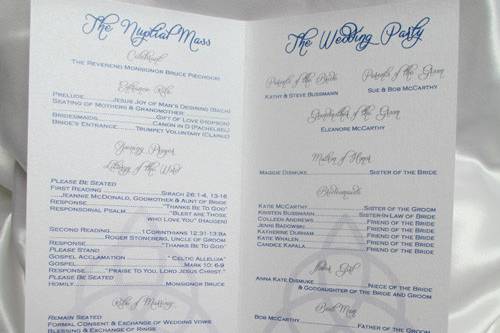 The Nuptial Mass
Celebrant
The Reverend Monsignor Bruce Piechocki
Entrance Rite
Prelude Jesus Joy of Man's Desiring (Bach)
Seating of Mothers & Grandmother
Bridesmaids Gift of Love (Hopson)
Canon in D (Pachelbel)
Bride's Entrance Trumpet Voluntary (Clarke)
Opening Prayer
Liturgy of the Word
Please Be Seated
First Reading Sirach 26:1-4, 13-16
Jeannie McDonald, Godmother & Aunt of Bride
Response "Thanks Be To God"
Responsorial Psalm "Blest are Those
who Love You" (Haugen)
Second Reading 1 Corinthians 12:31-13:8a
Roger Stoneberg, Uncle of Groom
Response "Thanks Be To God"
Please Stand
Gospel Acclamation "Celtic Alleluia"
Gospel Mark 10: 6-9
Response "Praise to You, Lord Jesus Christ."
Please Be Seated
Homily Monsignor Bruce
Rite of Marriage
Remain Seated
Formal Consent & Exchange of Wedding Vows
Blessing & Exchange of Rings
The Wedding Party
Parents of the Bride Parents of the Groom
Kathy & Steve Bussmann Sue & Bob McCarthy
Grandmother of the Groom
Eleanore McCarthy
Matron of Honor
Maggie Dismuke Sister of the Bride
Bridesmaids
Kate McCarthy Sister of the Groom
Kristen Bussmann Sister-in-Law of Bride
Colleen Andrews Friend of the Bride
Jenni Badowski Friend of the Bride
Katherine Durham Friend of the Bride
Kate Whalen Friend of the Bride
Candice Kapala Friend of the Bride
Flower Girl
Anna Kate Dismuke Niece of the Bride
& Goddaughter of the Bride and Groom
Best Man
Bob McCarthy Father of the Groom